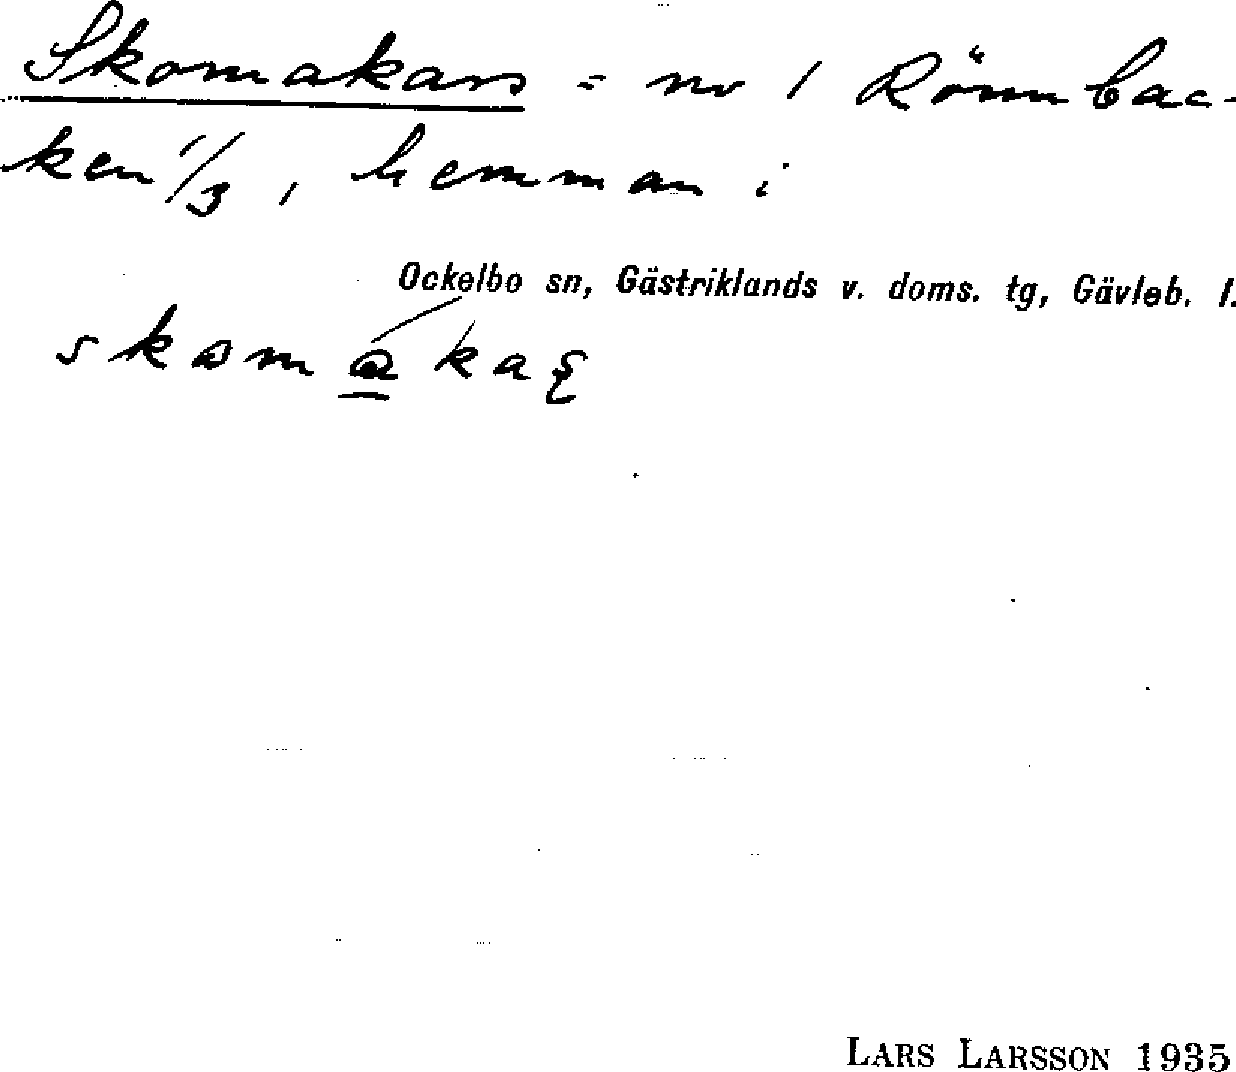 Skomakars = nr 1 Rönnbac-
ken 1/3, hemman i
Ockelbo sn, Gästriklands v. doms. tg, Gävleb. l.
LARS LARSSON 1935